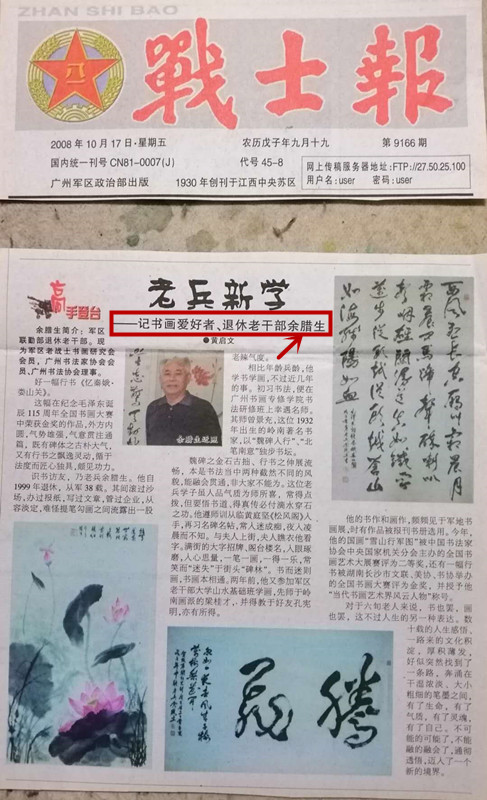 ZHAN SHI BAO
戰士報
八一
2008年10月17日·星期五
农历戊子年九月十九
第9166期
国内统一刊号CN81-0007(J)
代号45-8
网上传稿服务器地址:FTP://27.50.25.100
广州军区政治部出版
1930年创刊于江西中央苏区
用户名:user 密码:user
高手擂台
老兵新学
——记书画爱好者、退休老干部余腊生
●黄启文
余腊生简介:军区
联勤部退休老干部。现
为军区老战士书画研究会
会员,广州书法家协会会
员,广州书法协会理事。
好一幅行书《忆秦娥·
娄山关》。
这幅在纪念毛泽东诞
辰115周年全国书画大赛
中荣获金奖的作品,外方内
圆,气势雄强,气意贯注通
篇,既有碑体之古朴大气,
又有行书之飘逸灵动,循于
法度而匠心独具,颇见功力。
识书访友,乃老兵余腊生。他自
1999年退休,从军38载。其间滚过沙
场,办过报纸,写过文章,管过企业,从
容淡定,难怪提笔勾画之间流露出一股
余腊生近照
老辣气度。
相比年龄兵龄,他
学书学画,不过近几年
的事。初习书法,便在
广州书画专修学院书
法研修班上幸遇名师。
其师曾景充,这位1932
年出生的岭南著名书
家,以“魏碑人行”、“北
笔南意”独步书坛。
魏碑之金石古拙、行书之伸展流
畅,本是书法当中两种截然不同的风
貌,能融会贯通,非大家不能为。这位老
兵学子虽人品气质为师所喜,常得点
拨,但要悟书道,得真传必付滴水穿石
之功。他遵师训从临黄庭坚《松风阁》人
手,再习名碑名帖,常人迷成痴,夜人凌
晨而不知。与夫人上街,夫人挑衣他看
字,满街的大字招牌、阁台楼名,人眼琢
磨,人心思量,一笔一画,一得一乐,常
笑而“迷失”于街头“碑林”。书而迷则
画,书画本相通。两年前,他又参加军区
老干部大学山水基础班学画,先师于岭
南画派的梁桂才,并得教于好友孔宪
明,亦有所得。
他的书作和画作,频频见于军地书
画展,时有作品被报刊录选用。今年,
他的国画“雪山行军图”被中国书法家
协会中央国家机关分会主办的全国书
画艺术大展赛评为二等奖,还有一幅行
书被湖南长沙市文联、美协、书协举办
的全国书画大赛评为金奖,并授予他
“当代书画艺术界风云人物”称号。
对于六旬老人来说,书也罢,画
也罢,这不过人生的另一种表达。数
十载的人生感悟,
一路来的文化积
淀。厚积薄发,
好似突然找到了
一条路,奔涌在
干湿浓淡、大小
粗细的笔墨之间,
有了生命,有了
气质,有了灵魂,
有了自己。不可
能的可能了,不能
融的融会了,通彻
透悟,迈人了一个
新的境界。
腾龙